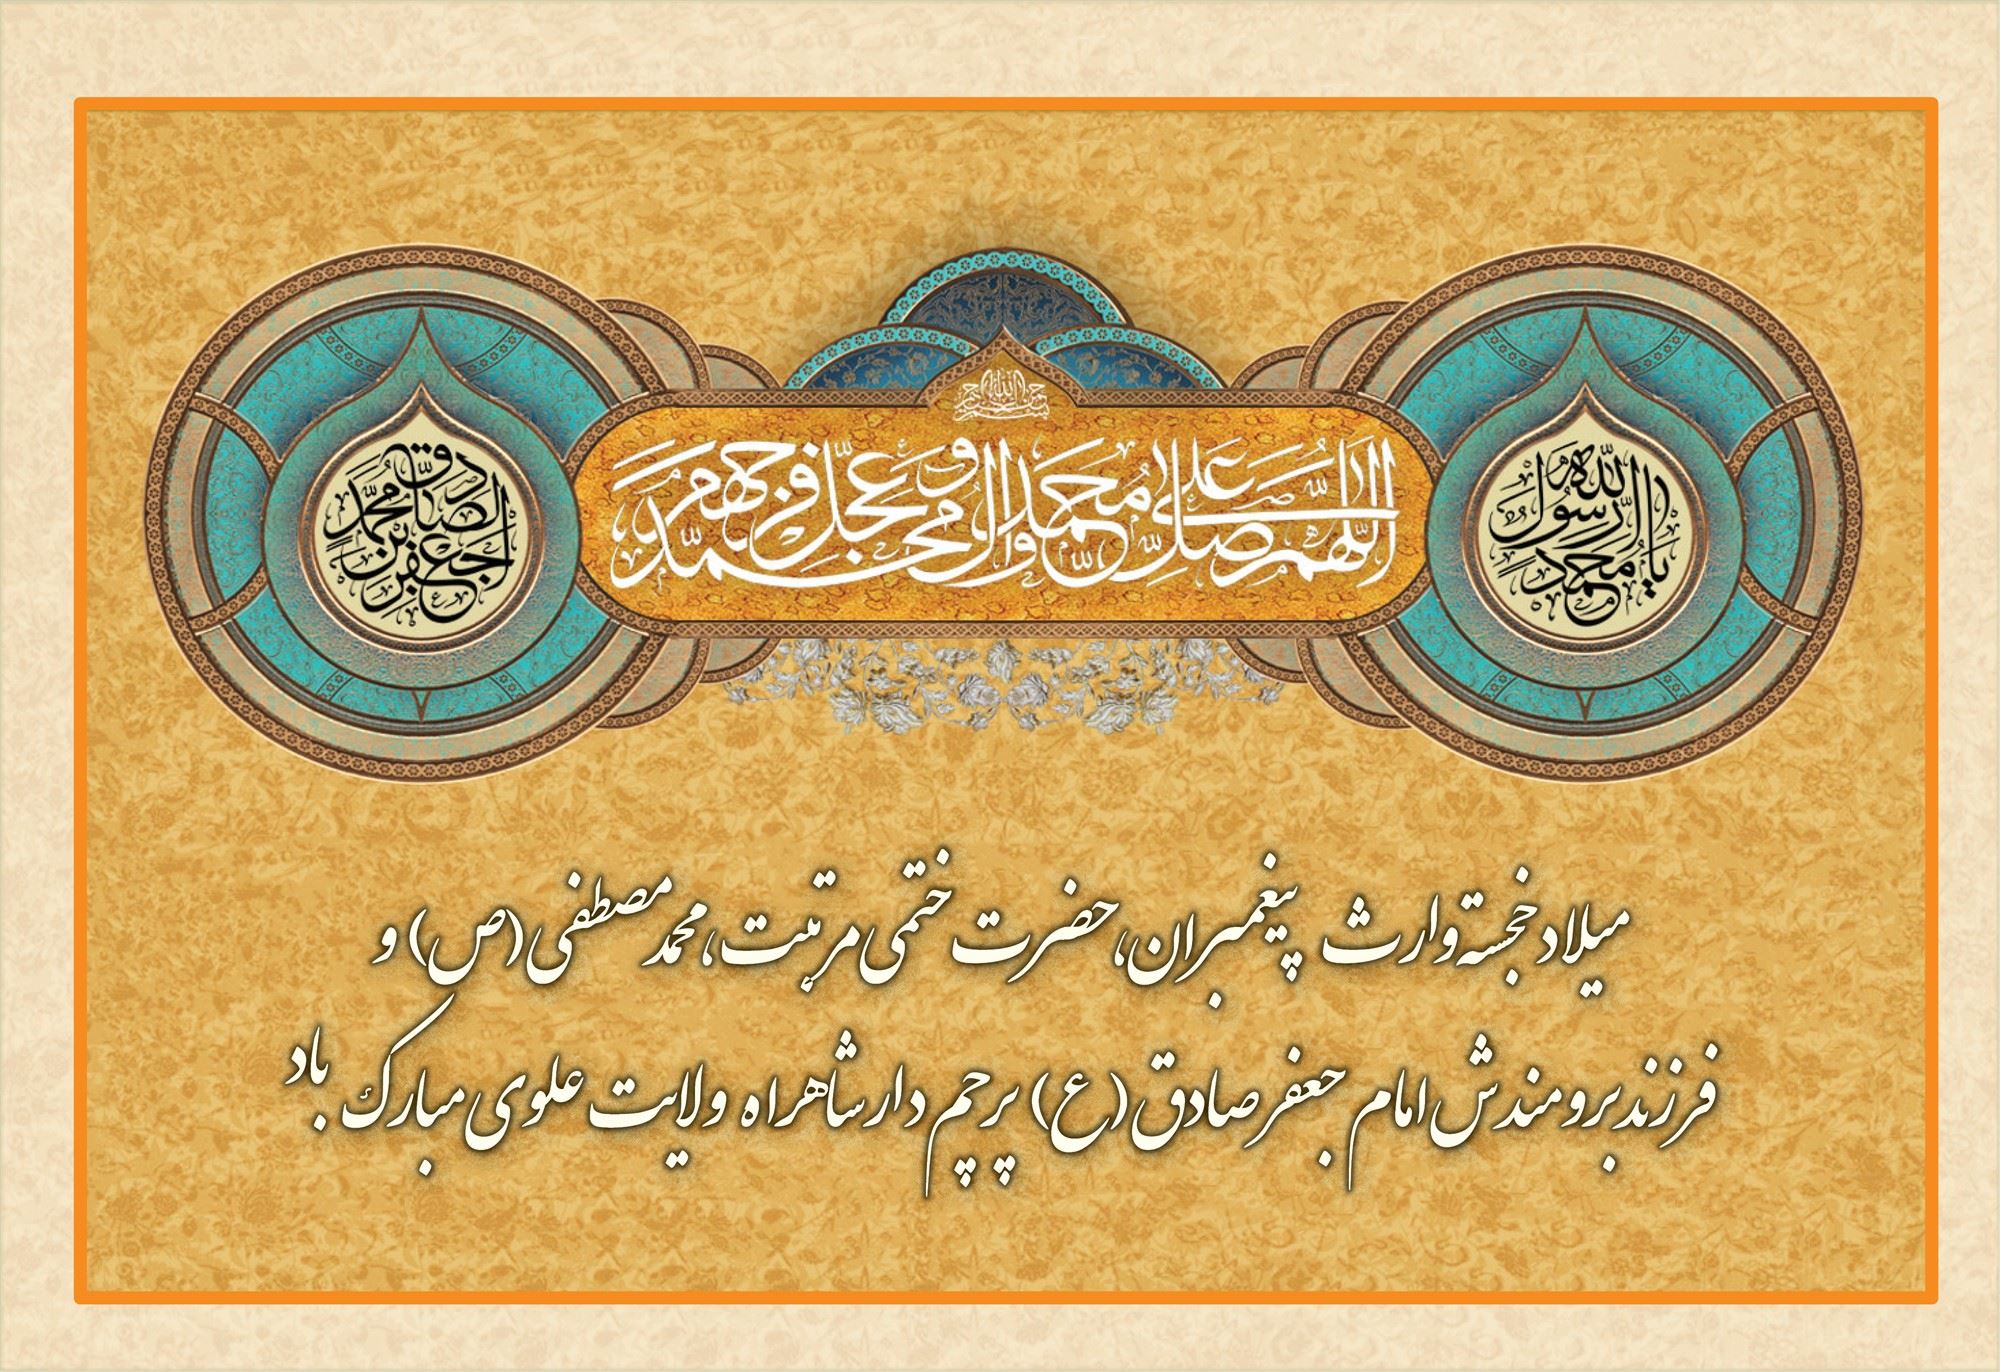 بسم الله الرحمن الرحیم
اللهم صل علی محمد و آل محمد و عجل فرجهم
یا محمد رسول الله
جعفر بن محمد الصادق
میلاد خجسته وارث پیغمبران، حضرت ختمی مرتبت، محمد مصطفی (ص) و
فرزند برومندش امام جعفر صادق (ع) پرچم دار شاهراه ولایت علوی مبارک باد